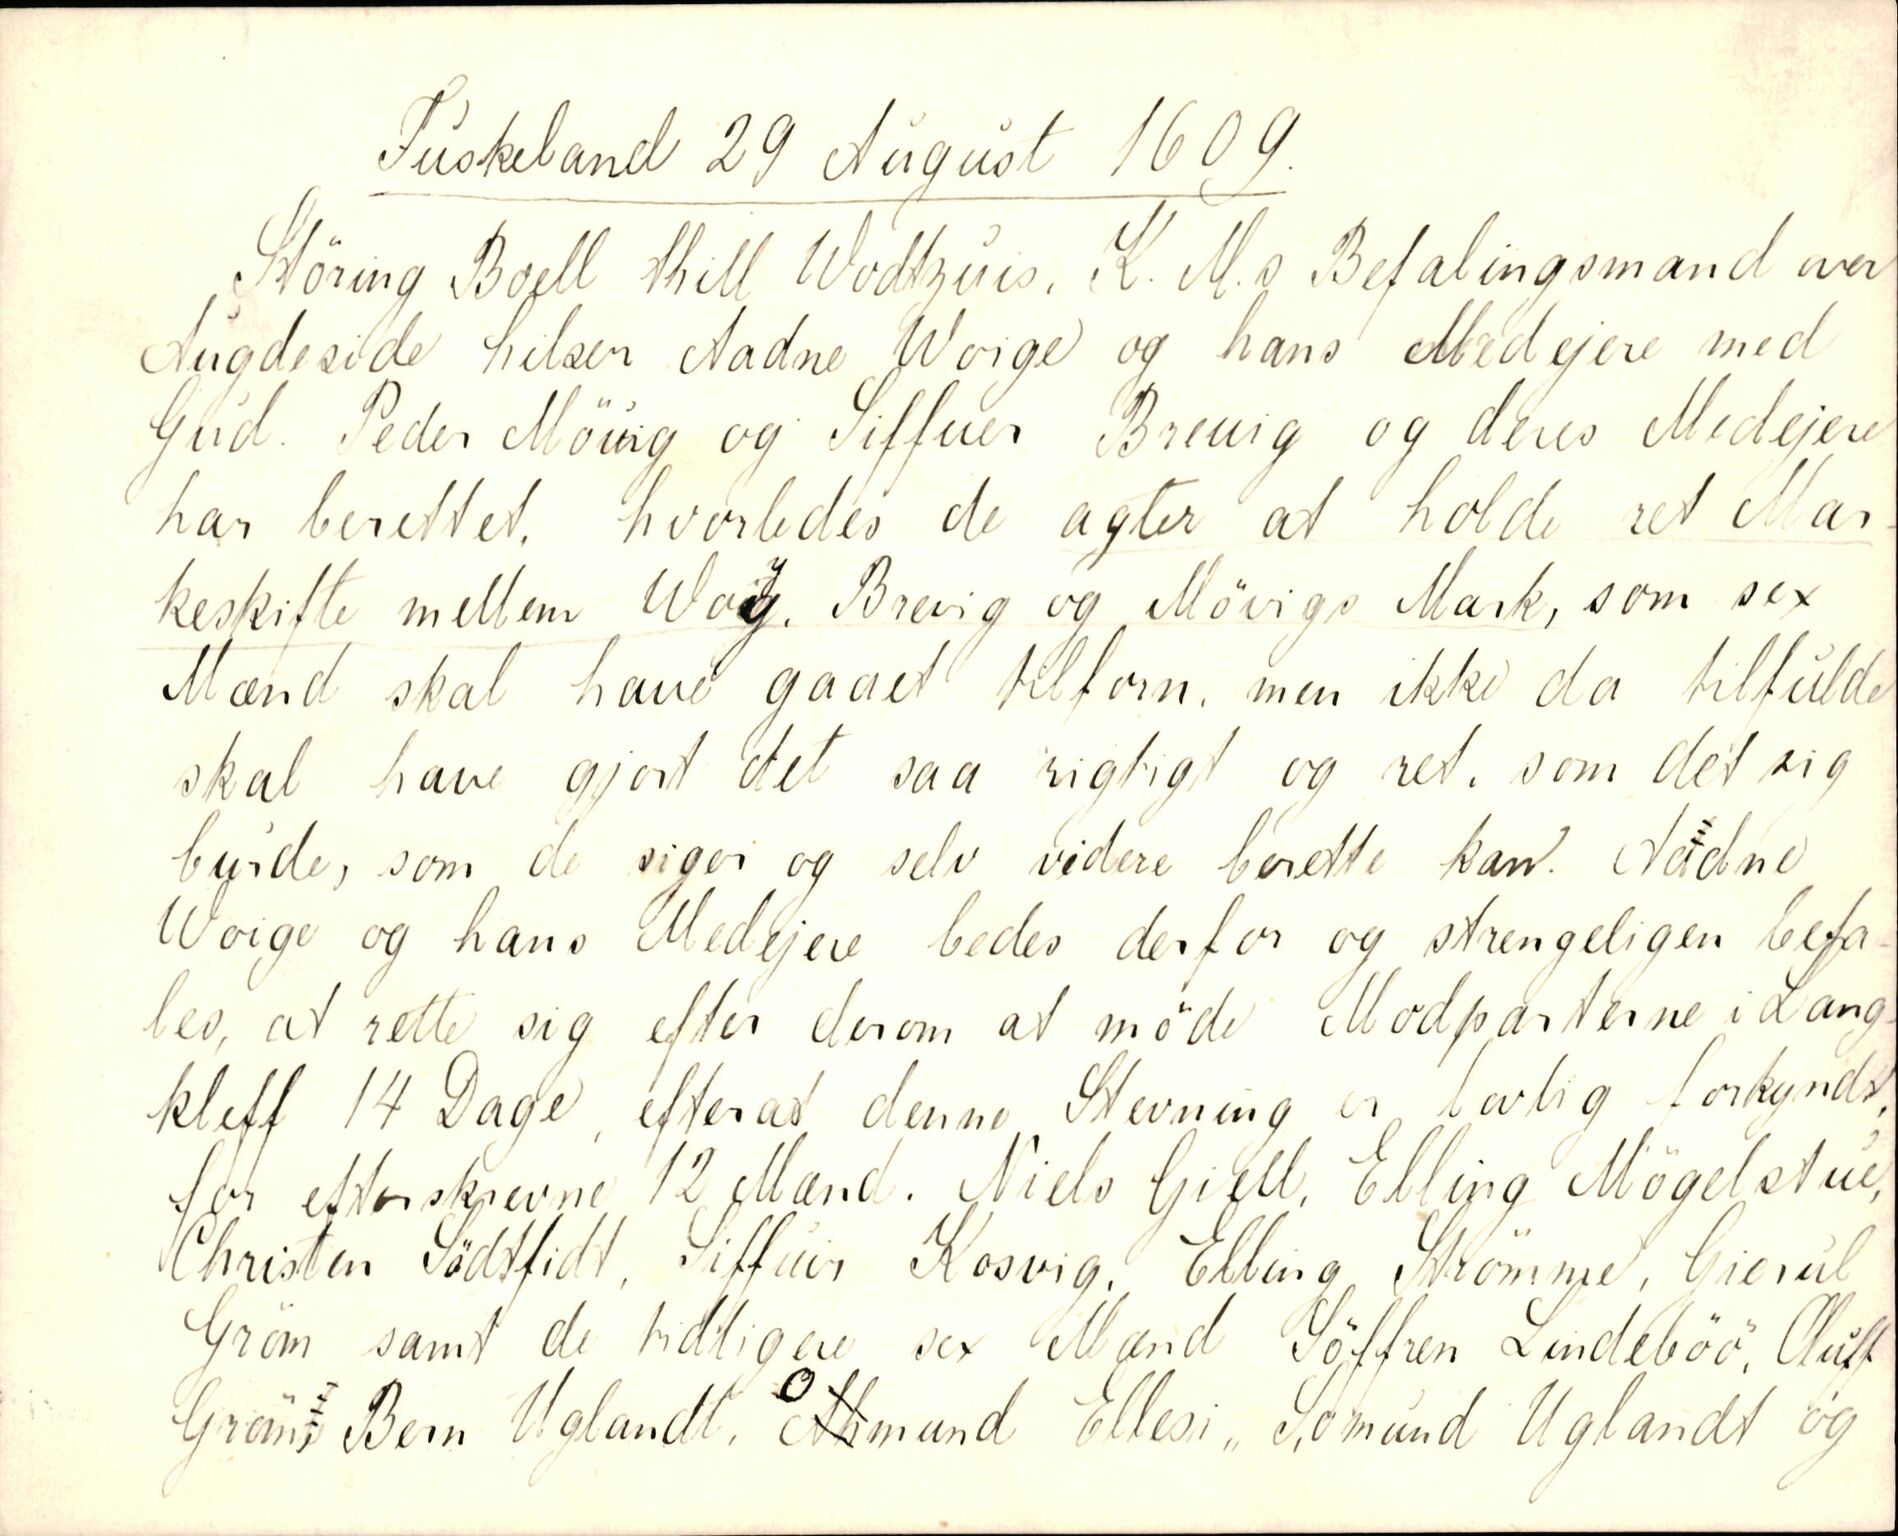 Tuskeland 29 August 1609.
Störing Boell thill Wodtzuis, K. M.s Befalingsmand over
Augdeside hilser Aadne Woige og hans Medejere med
Gud. Peder Möuig og Siffuer Breuig og deres Medejere
har berettet, hvorledes de agter at holde ret Mar-
keskifte mellem Woig, Brevig og Mövigs Mark, som sex
Mænd skal have gaaet tilforn, men ikke da tilfulde
skal have gjort det saa rigtigt og ret, som det sig
burde, som de siger og selv videre berette kan. Aadne
Woige og hans Medejere bedes derfor og strengeligen befa-
les, at rette sig efter derom at möde Modparterne i Lang-
kleff 14 Dage, efterat denne Stevning er lovlig forkyndt,
for efterskrevne 12 Mænd. Niels Giell, Elling Mögelstue,
Christen Södtfidt, Siffuir Kosvig, Elling Strömme, Gierul
Gröm samt de tidligere sex Mænd Söffren Lindeböö, Oluff
Gröm, Bern Uglandt, Omund Ellesi,, Somund Uglandt og